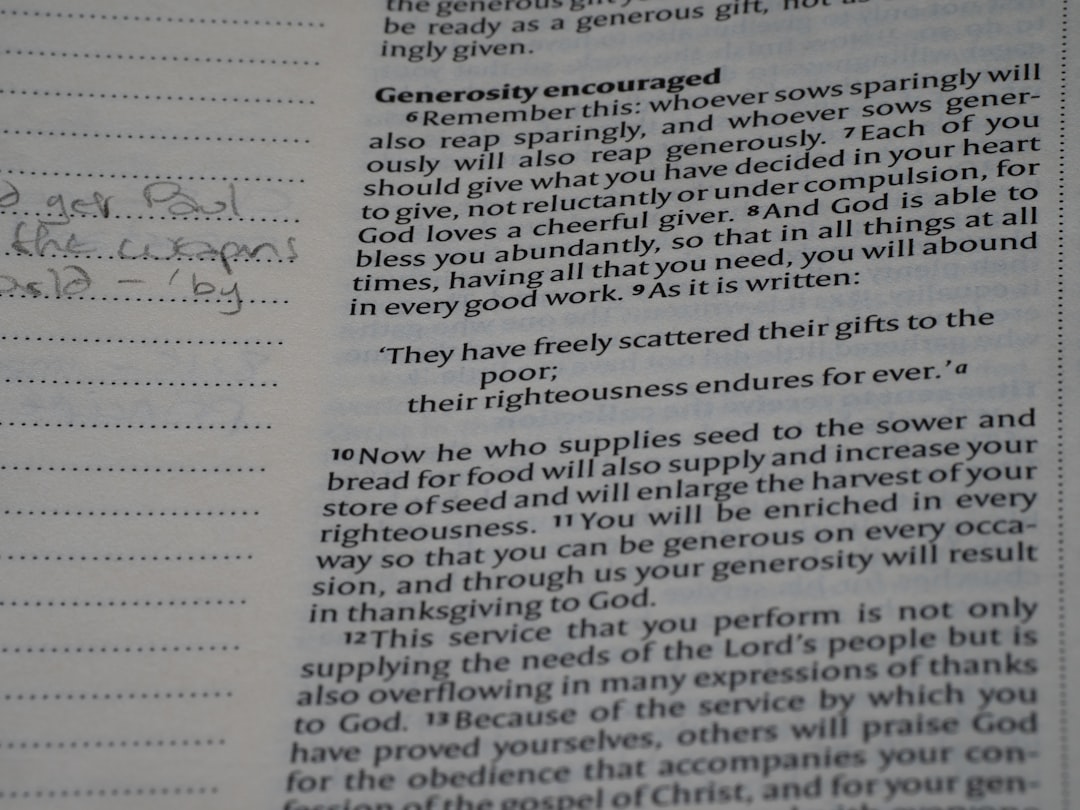 the generous
be ready as a generous gift, not as
ingly given.
Generosity encouraged
6 Remember this: whoever sows sparingly will
also reap sparingly, and whoever sows gener-
ously will also reap generously. 7 Each of you
should give what you have decided in your heart
to give, not reluctantly or under compulsion, for
God loves a cheerful giver. 8 And God is able to
bless you abundantly, so that in all things at all
times, having all that you need, you will abound
in every good work. 9 As it is written:
‘They have freely scattered their gifts to the
poor;
their righteousness endures for ever.’ a
10 Now he who supplies seed to the sower and
bread for food will also supply and increase your
store of seed and will enlarge the harvest of your
righteousness. 11 You will be enriched in every
way so that you can be generous on every occa-
sion, and through us your generosity will result
in thanksgiving to God.
12 This service that you perform is not only
supplying the needs of the Lord’s people but is
also overflowing in many expressions of thanks
to God. 13 Because of the service by which you
have proved yourselves, others will praise God
for the obedience that accompanies your con-
fession of the gospel of Christ, and for your gen-
Paul
the weapons
– ‘by